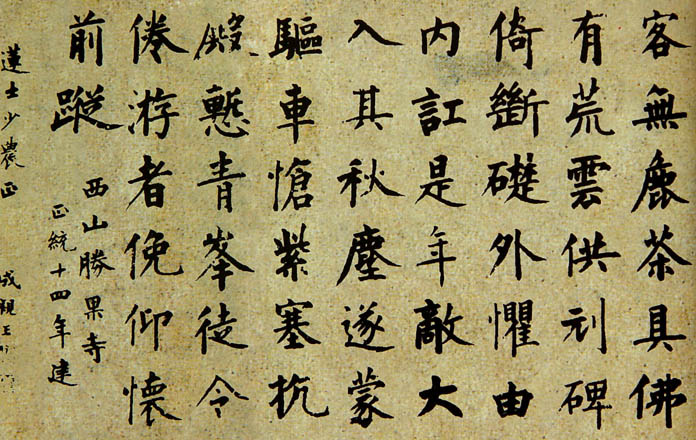 客無麁茶具佛
有荒雲供刓碑
倚斷礎外懼由
内訌是年敵大
入其秋塵遂蒙
驅車愴紫塞抗
慙青峯徒令
倦游者俛仰懷
前蹤
西山勝果寺
正統十四年建
蓮士少農正
成親王